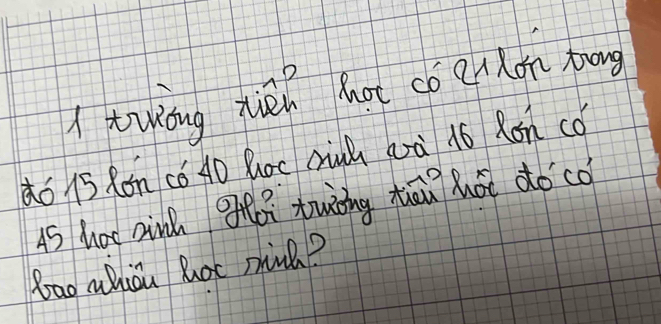 1 trường tiểu học có 21 lớn trong
đó 15 lớn có 40 học sinh và 16 lớn có
45 học sinh. Hỏi trường tiểu hốc đó có
bao nhiêu học sinh?